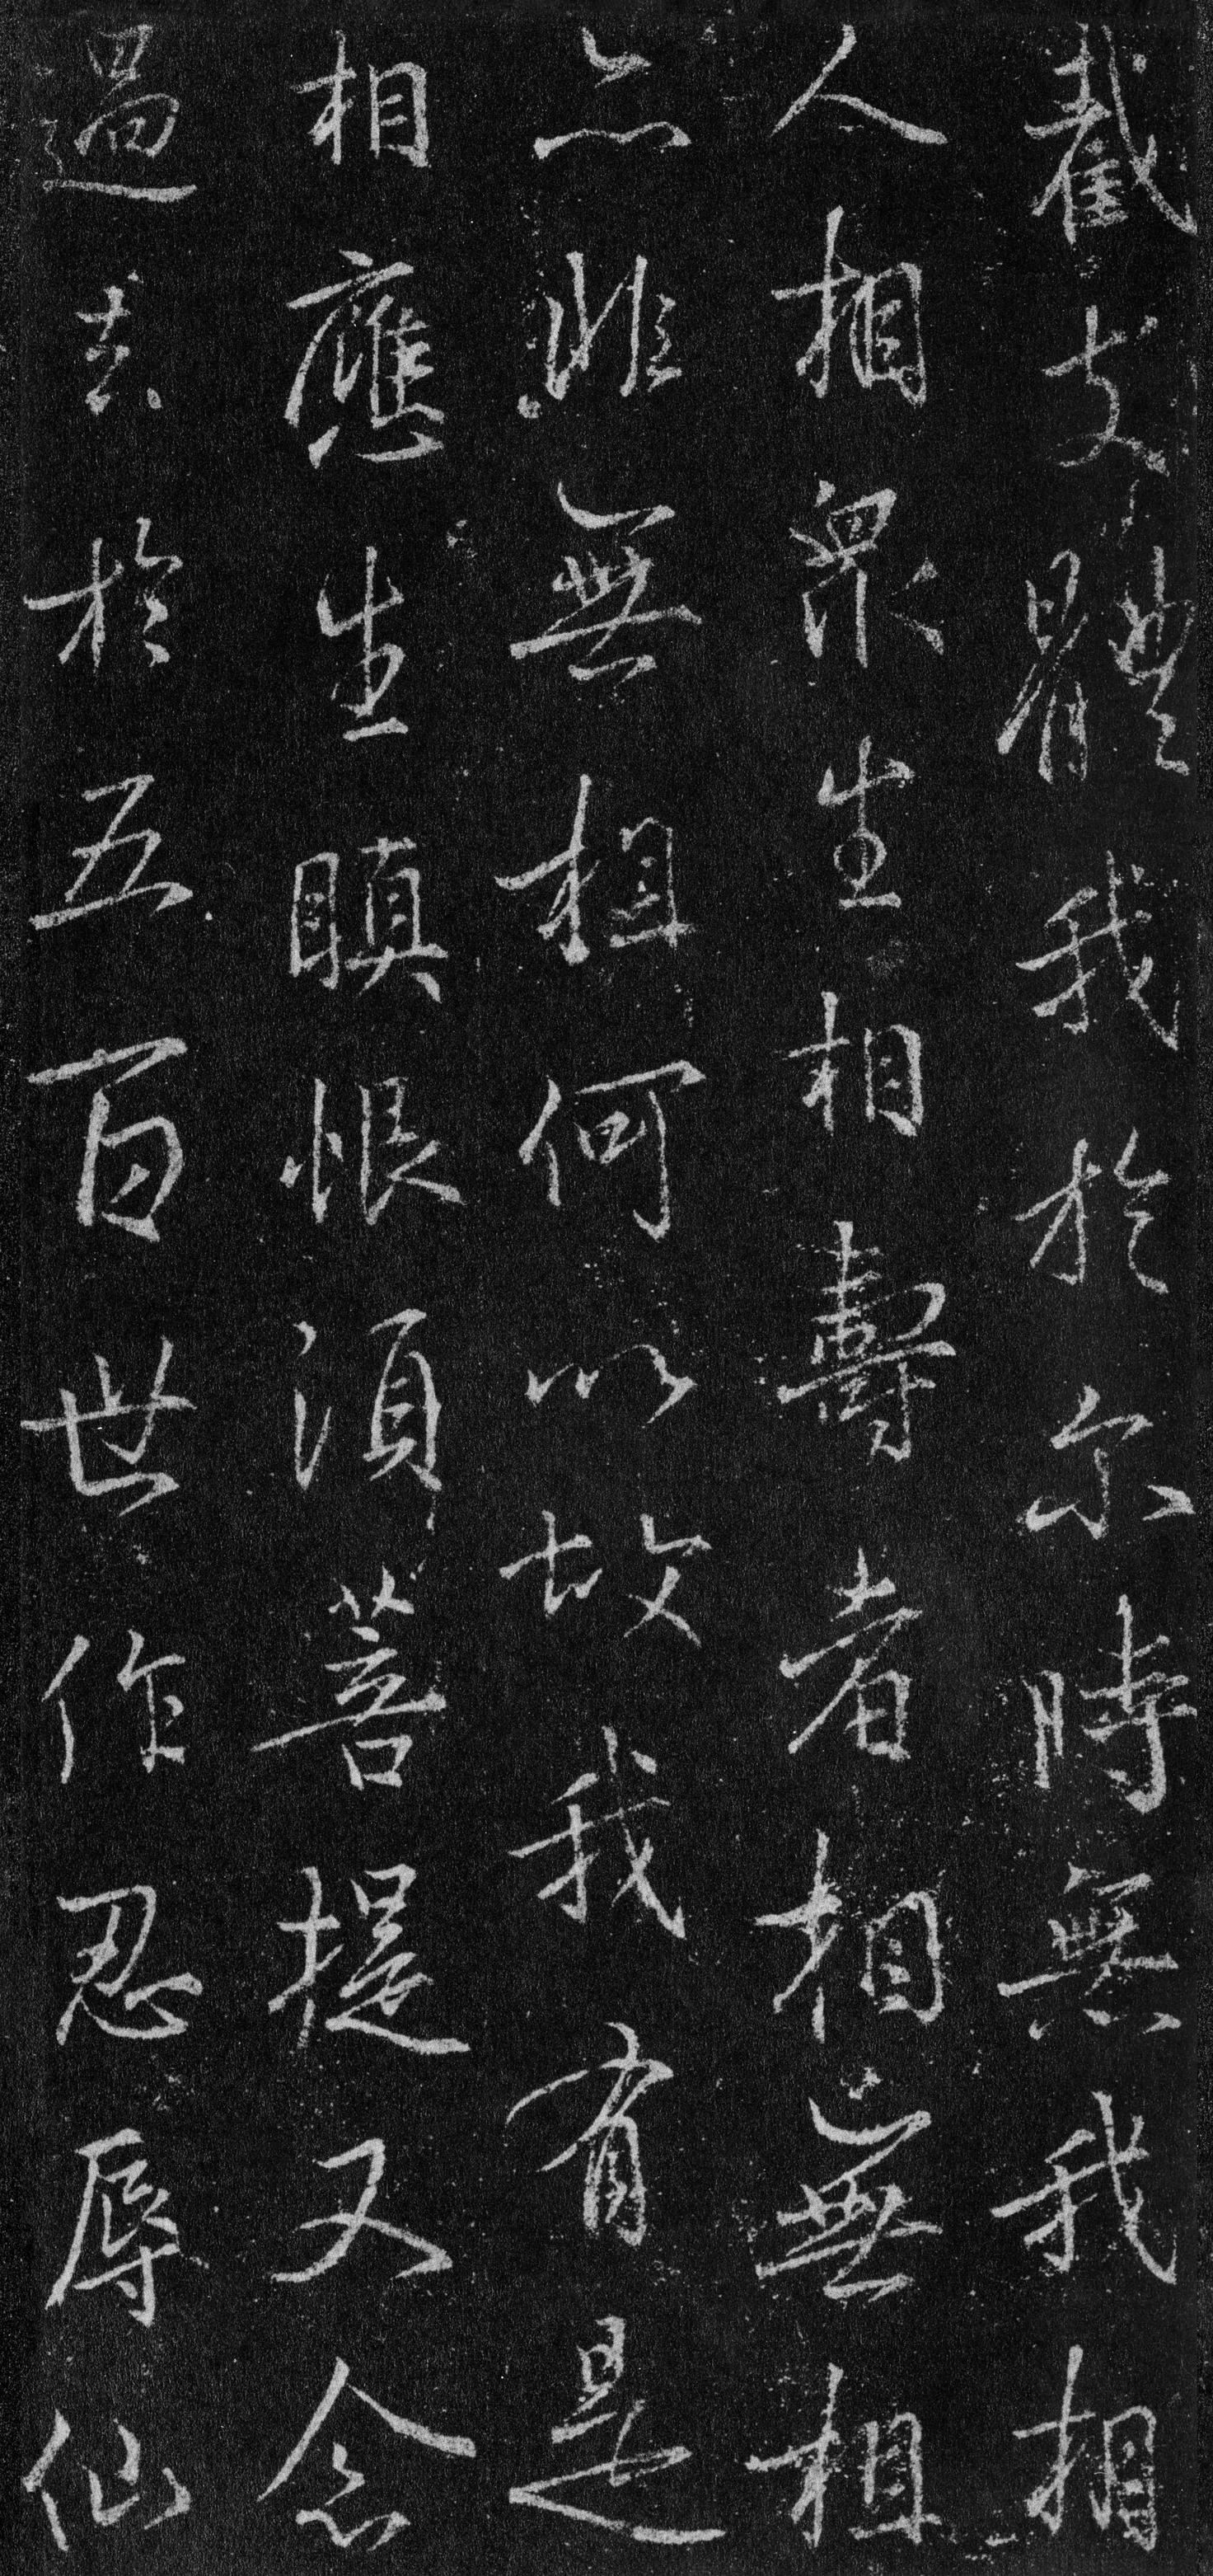 截支體我於尒時無我相
人相眾生相壽者相無相
亦非無相何以故我有是
相應生瞋恨須菩提又念
過去於五百世作忍辱仙